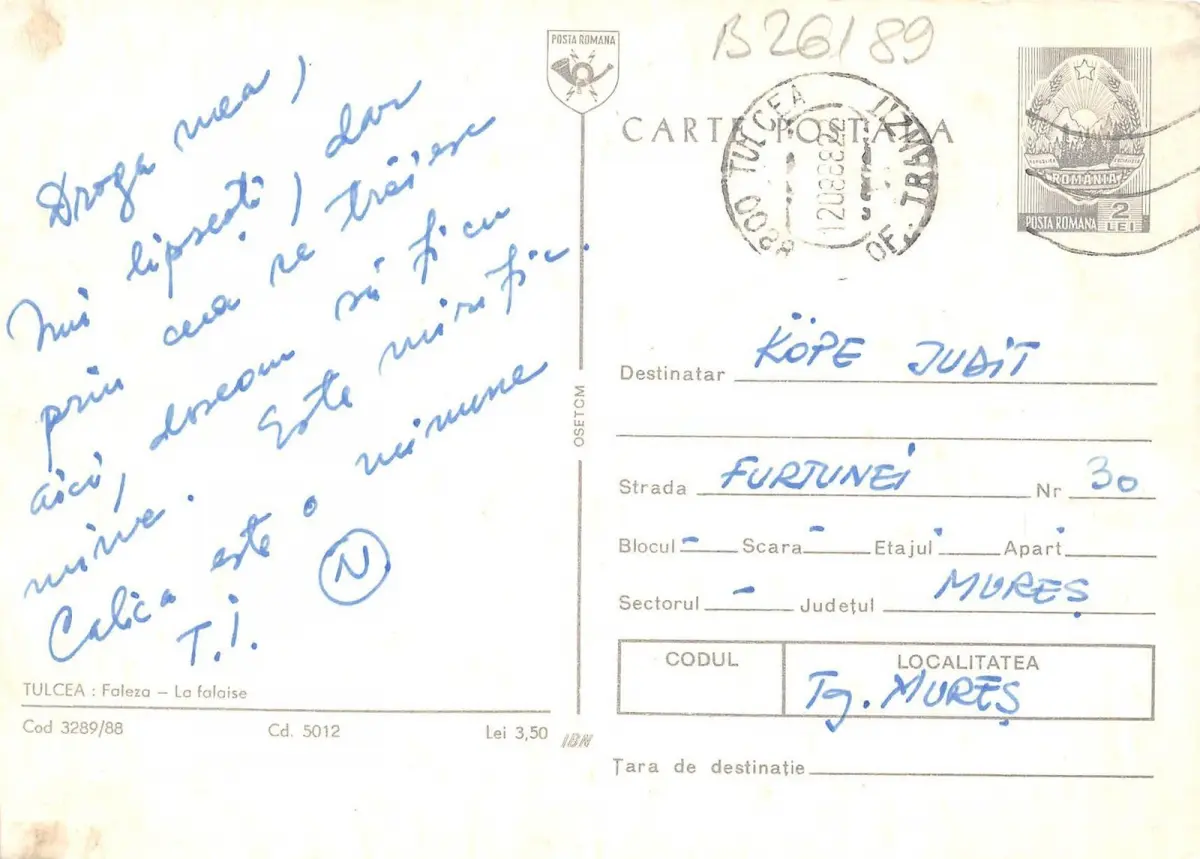 B 26/89
POSTA ROMANA
CARTE POSTALA
8800 TULCEA
OF. TRANZIT
120888
ROMANIA
POSTA ROMANA 2 LEI
Draga mea,
Îmi lipsești, dar
prin ceea ce trăiesc
aici, doream să fii cu
mine. Este mirific.
Calica este o minune
T.I. N
TULCEA : Faleza – La falaise
Cod 3289/88 Cd. 5012 Lei 3,50
OSETCM
IBN
Destinatar KÖPE JUDIT
Strada FURTUNEI Nr 30
Blocul - Scara - Etajul - Apart -
Sectorul - Județul MUREȘ
CODUL LOCALITATEA
Tg. MUREȘ
Țara de destinație